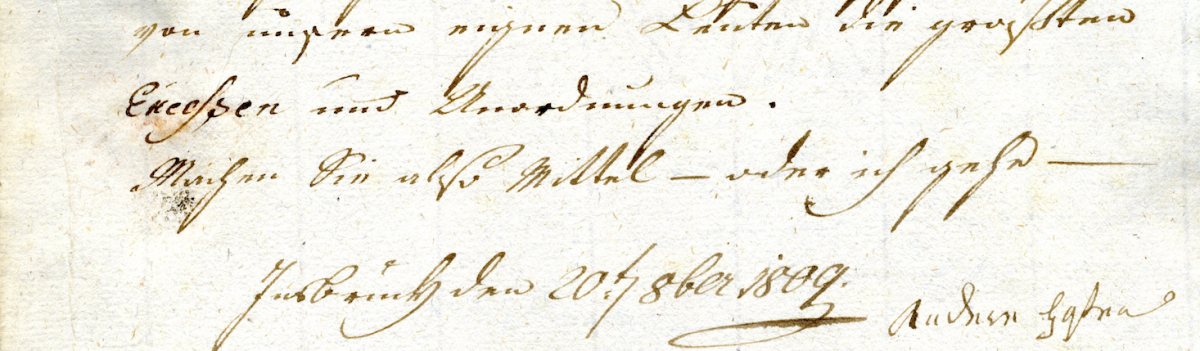 von unsern eignen Leuten die größten
Excessen und Unordnungen.
Machen Sie also Mittel – oder ich gehe –
Insbruck den 20t 8ber 1809.
Andere